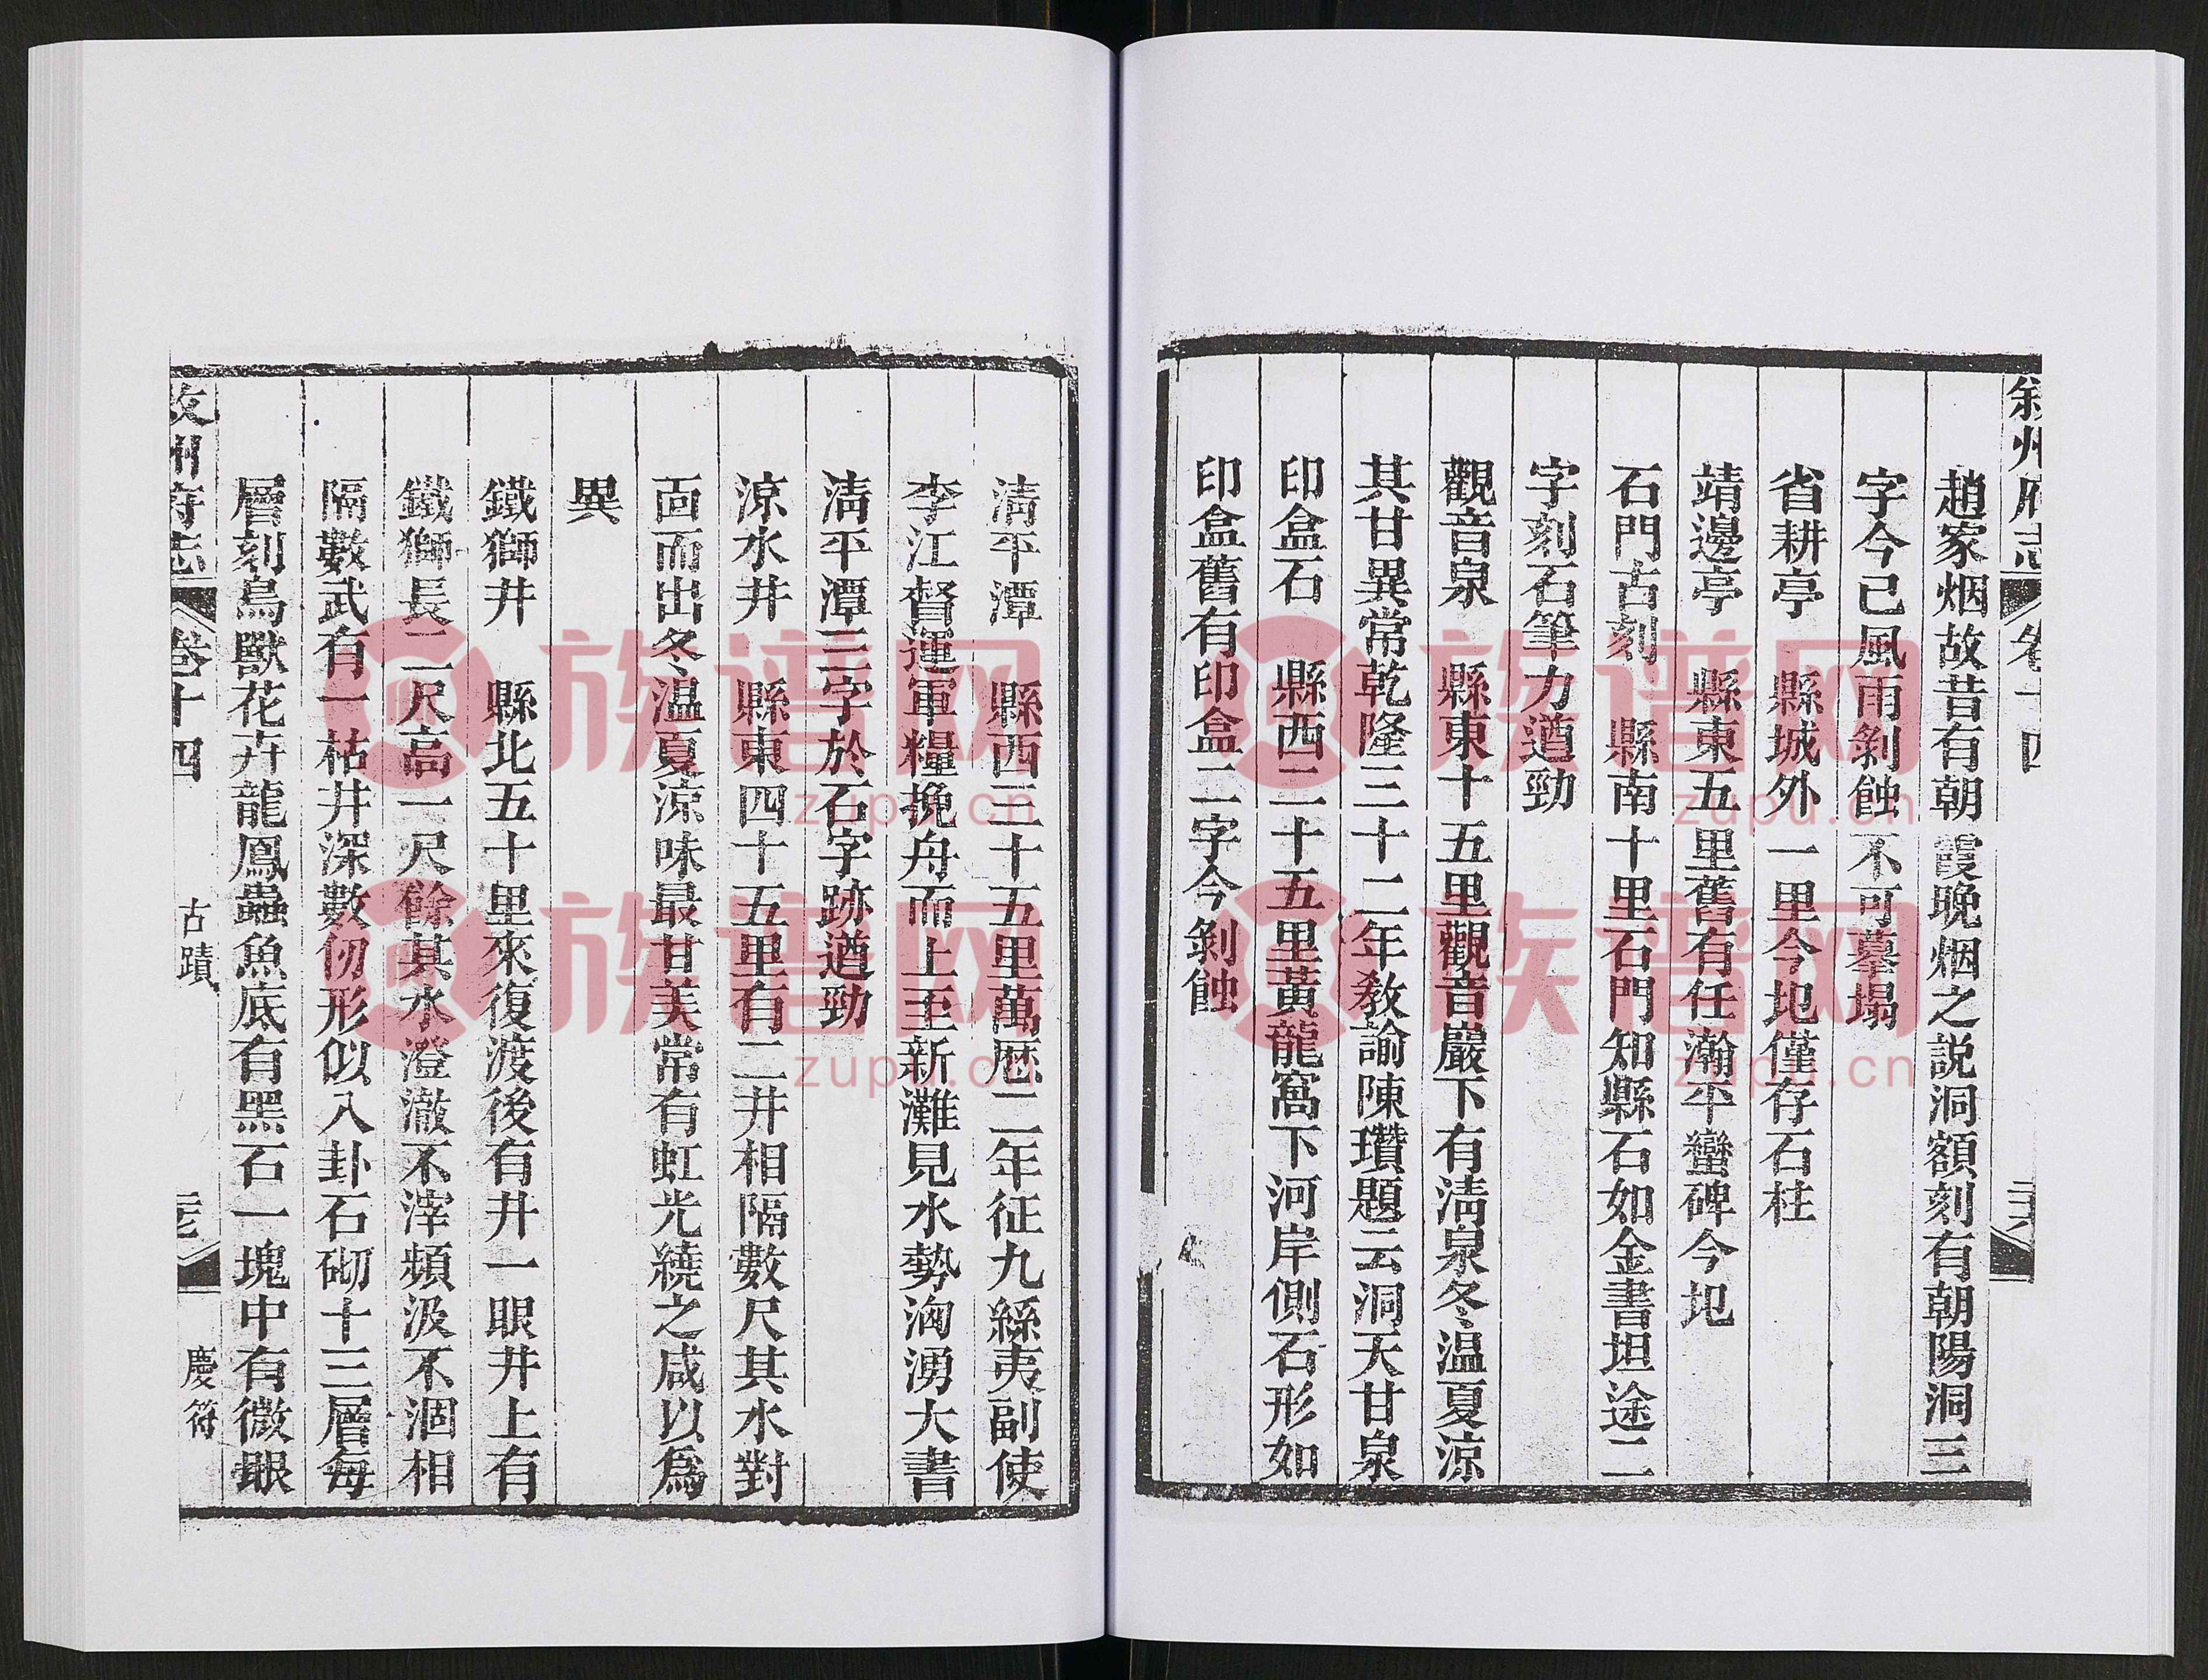 叙州府志 卷十四 二六
趙家烟故昔有朝霞晚烟之説洞額刻有朝陽洞三
字今已風雨剝蝕不可摹塌
省耕亭 縣城外一里今圯僅存石柱
靖邊亭 縣東五里舊有任瀚平蠻碑今圯
石門古刻 縣南十里石門知縣石如金書坦途二
字刻石筆力遒勁
觀音泉 縣東十五里觀音巖下有淸泉冬温夏涼
其甘異常乾隆三十二年敎諭陳瓚題云洞天甘泉
印盒石 縣西二十五里黃龍窩下河岸側石形如
印盒舊有印盒二字今剝蝕
淸平潭 縣西三十五里萬厯二年征九絲夷副使
李江督運軍糧挽舟而上至新灘見水勢洶湧大書
淸平潭三字於石字跡遒勁
涼水井 縣東四十五里有二井相隔數尺其水對
面而出冬温夏涼味最甘美常有虹光繞之咸以爲
異
鐵獅井 縣北五十里來復渡後有井一眼井上有
鐵獅長二尺高一尺餘其水澄澈不滓頻汲不涸相
隔數武有一枯井深數仞形似八卦石砌十三層每
層刻鳥獸花卉龍鳳蟲魚底有黑石一塊中有微眼
叙州府志 卷十四 古蹟 二七 慶符
族谱网 族谱网
zupu.cn zupu.cn
族谱网 族谱网
zupu.cn zupu.cn